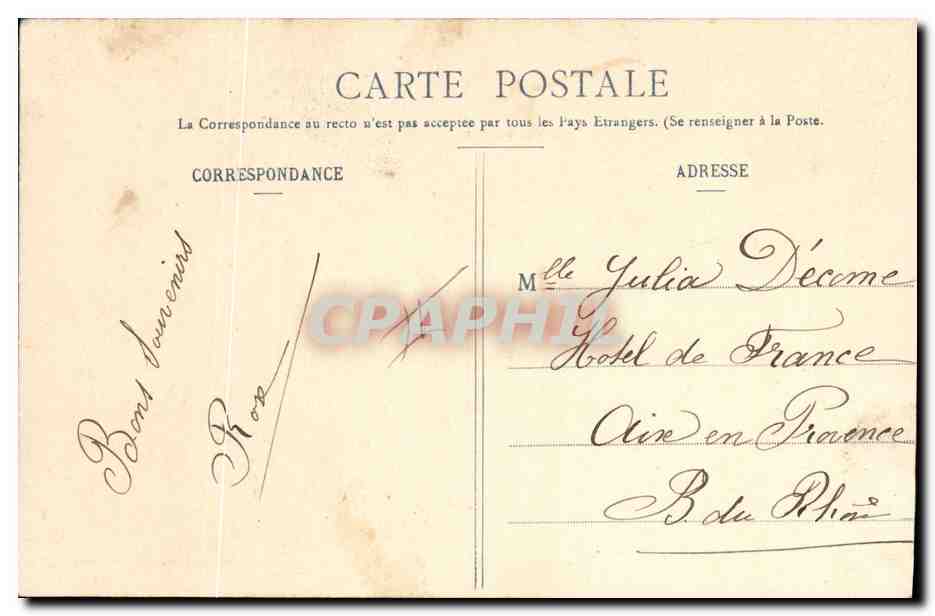 CARTE POSTALE
La Correspondance au recto n'est pas acceptée par tous les Pays Etrangers. (Se renseigner à la Poste.
CORRESPONDANCE
Bons Souvenirs
ADRESSE
Mlle Julia Décome
Hotel de France
Aix en Provence
B. du Rhône
CPAPHIL